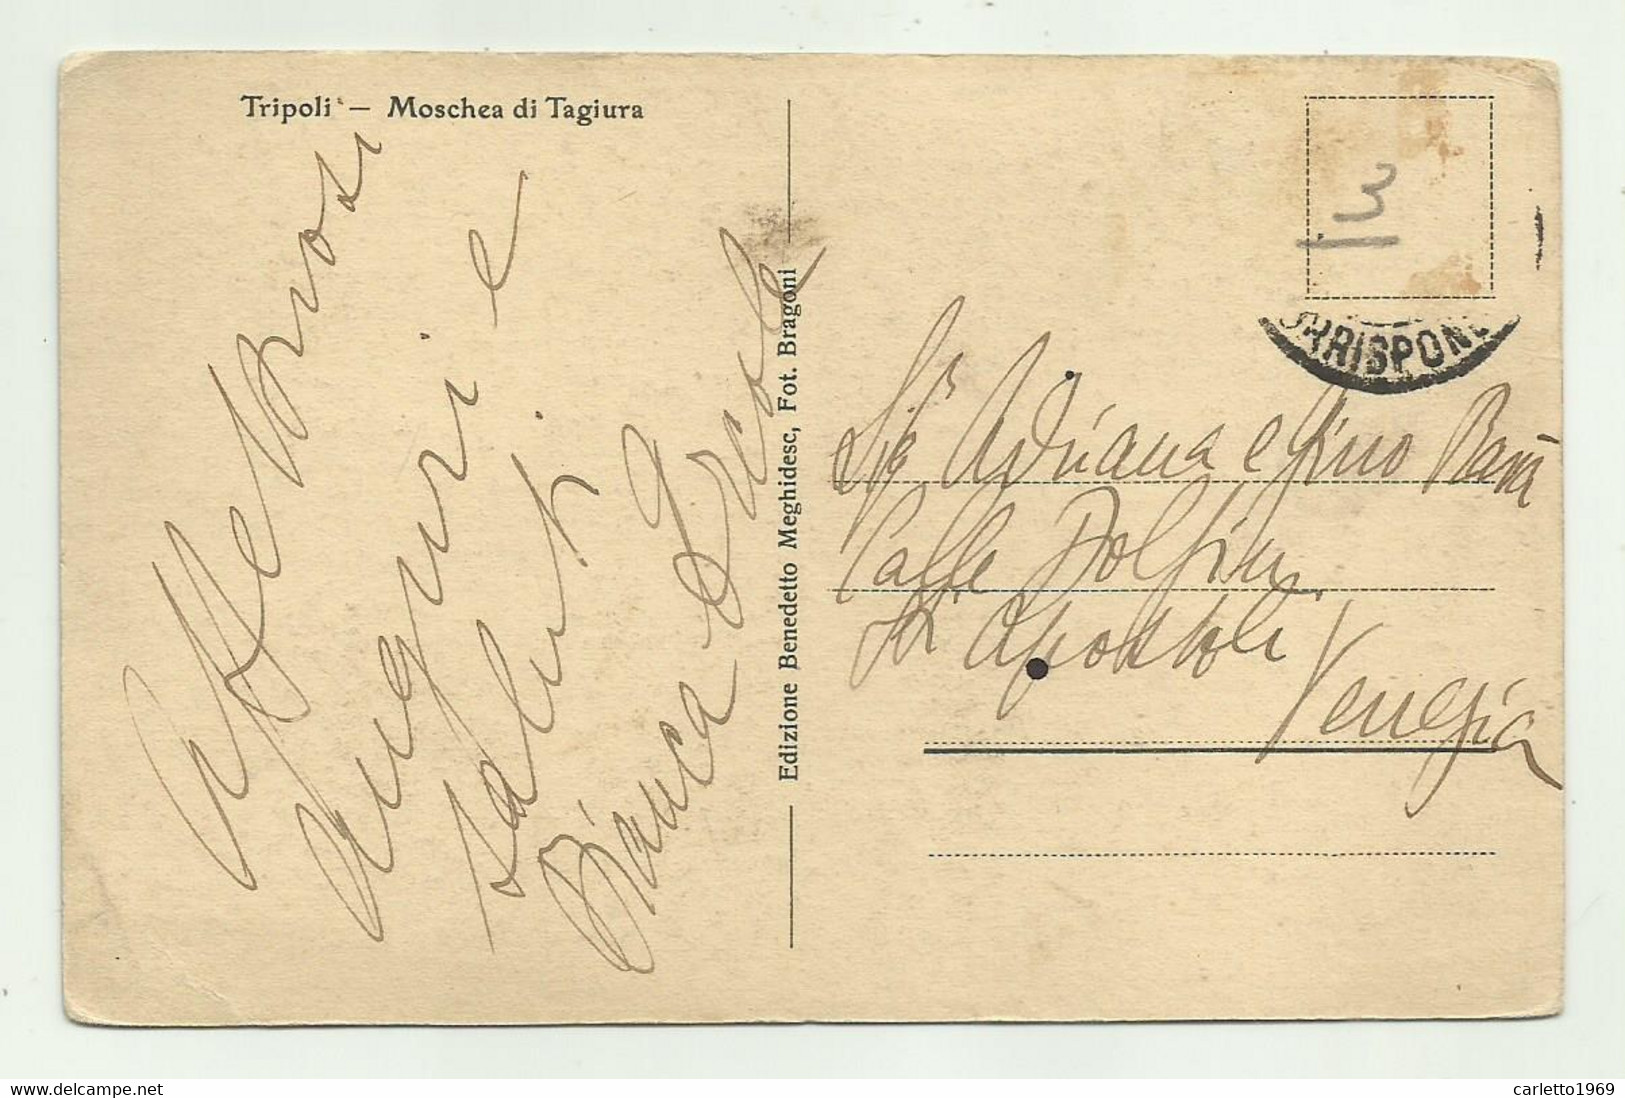 Tripoli — Moschea di Tagiura
Affettuosi
auguri e
saluti
Bianca Ercole
Edizione Benedetto Meghidesc, Fot. Bragoni
13
RRISPON
Adriana e Gino
Caffe Dolfin
Apostoli
Venezia
delcampe.net
carletto1969